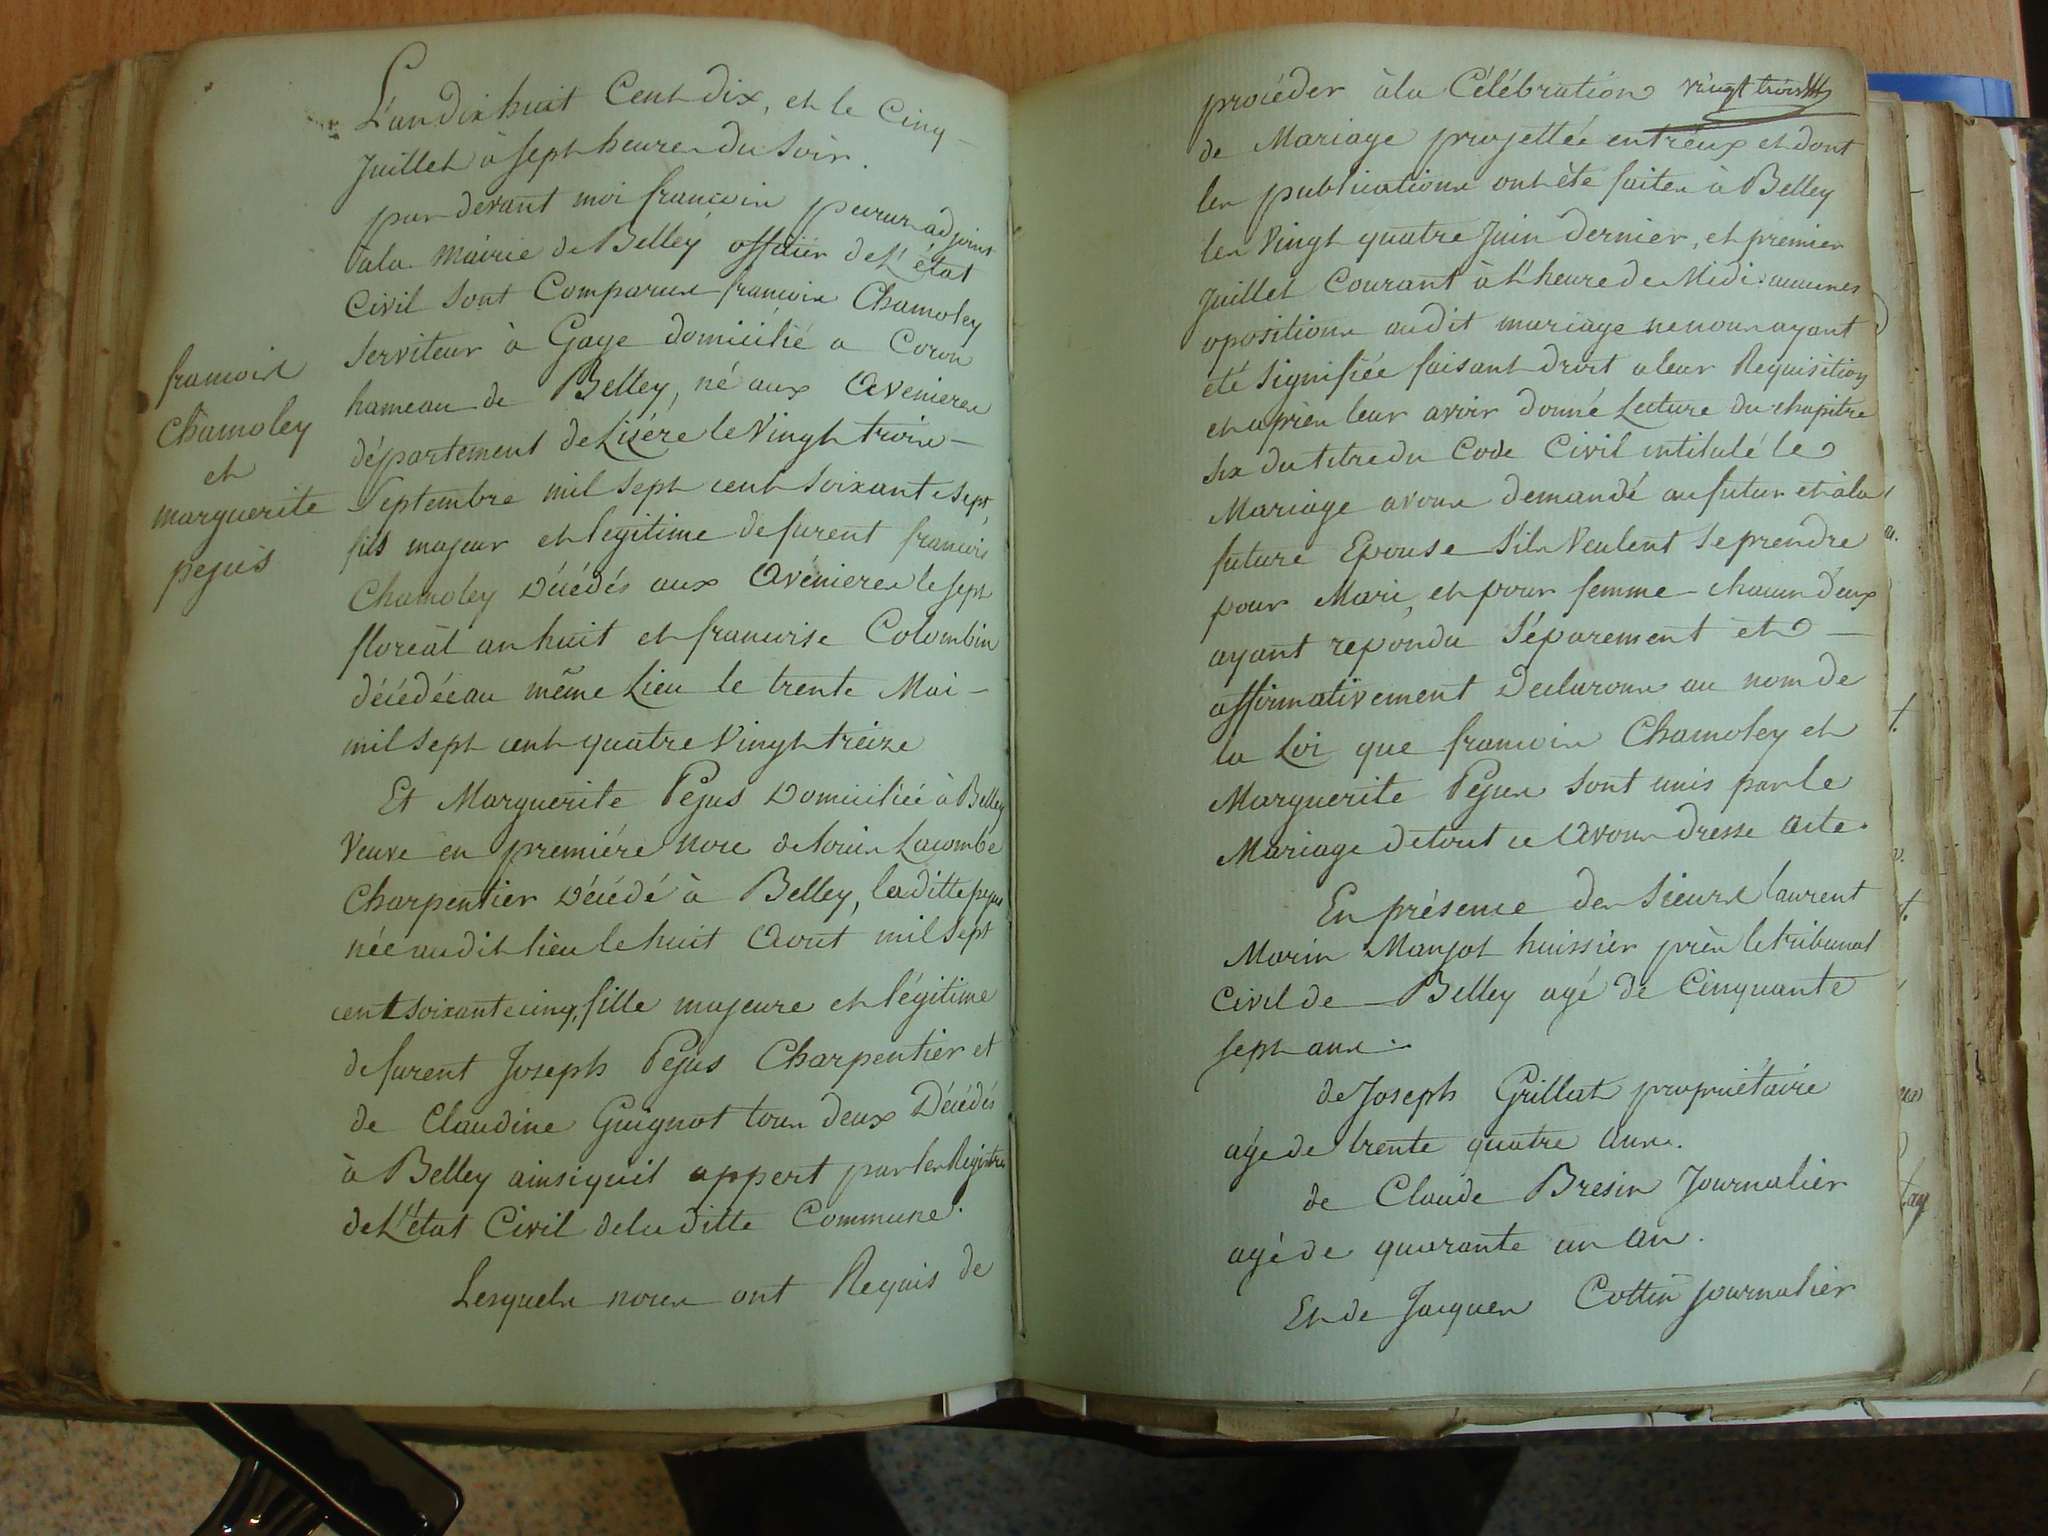 françois
Chamoley
et
marguerite
pejus
L'an dix huit Cent dix, et le Cinq
Juillet à sept heures du soir.
par devant moi françois adjoint
à la Mairie de Belley officier de L'état
Civil sont Comparus françois Chamoley
serviteur à Gage domicilié a Coron
hameau de Belley, né aux Avenieres
département de Lisére le Vingt trois
Septembre mil sept cent soixante sept
fils majeur et legitime defurent françois
Chamoley Décédés aux Avénieres le sept
floréal an huit et francoise Colombin
décédée au même Lieu le trente Mai
mil sept cent quatre Vingt treize
Et Marguerite Pejus Domiciliée à Belley
Veuve en premiére noce de louis Lacombe
Charpentier Décédé à Belley, la ditte pejus
née au dit lieu le huit Aout mil sept
cent soixante cinq, fille majeure et légitime
defurent Joseph Pejus Charpentier et
de Claudine Guignot tous deux Décédés
à Belley ainsi quil appert par les Registres
de L'état Civil de la ditte Commune.
Lesquels nous ont Requis de
vingt trois
procéder à la Célébration
de Mariage projettée entréux et dont
les publications ont été faites à Belley
les Vingt quatre Juin dernier, et premier
Juillet Courant à L'heure de Midi. aucunes
opositions au dit mariage ne nous ayant
été signifiée faisant droit a leur Requisition
et après leur avoir donné Lecture du chapitre
six du titre du Code Civil intitulé le
Mariage avons demandé au futur et à la
future Epouse s'ils Veulent se prendre
pour Mari, et pour femme chacun déux
ayant repondu séparement et
affirmativement Declarons au nom de
la Loi que francois Chamoley et
Marguerite Pejus sont unis par le
Mariage de tout ce Avons dresse Acte.
En présence des sieurs laurent
Marin Manjot huissier près le tribunal
Civil de Belley agé de Cinquante
sept ans.
de Joseph Grillat propriétaire
agé de trente quatre Ans.
de Claude Bresin Journalier
agé de quarante un An.
Et de Jacques Cottin journalier